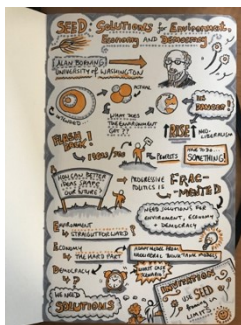 SEED Solutions for Environment,
Economy and Democracy
ALAN BORNING
UNIVERSITY OF
WASHINGTON
IN
DANGER!
WHAT DOES
THE ENVIRONMENT
GET??
RISE
NEO-
LIBERALISM
FLASH!
BANG!
PROFITS
HAVE TO DO
SOMETHING!
HOW CAN BETTER
IDEAS SHAPE
OUR FUTURE?
PROGRESSIVE
POLITICS IS
FRAG-
MENTED
NEED SOLUTIONS FOR
ENVIRONMENT, ECONOMY
+ DEMOCRACY
ENVIRONMENT
STRAIGHTFORWARD?
ECONOMY
THE HARD PART
DEMOCRACY
?
WORST CASE
WE NEED
SOLUTIONS
INVITATION
USE SEED
LIMITS